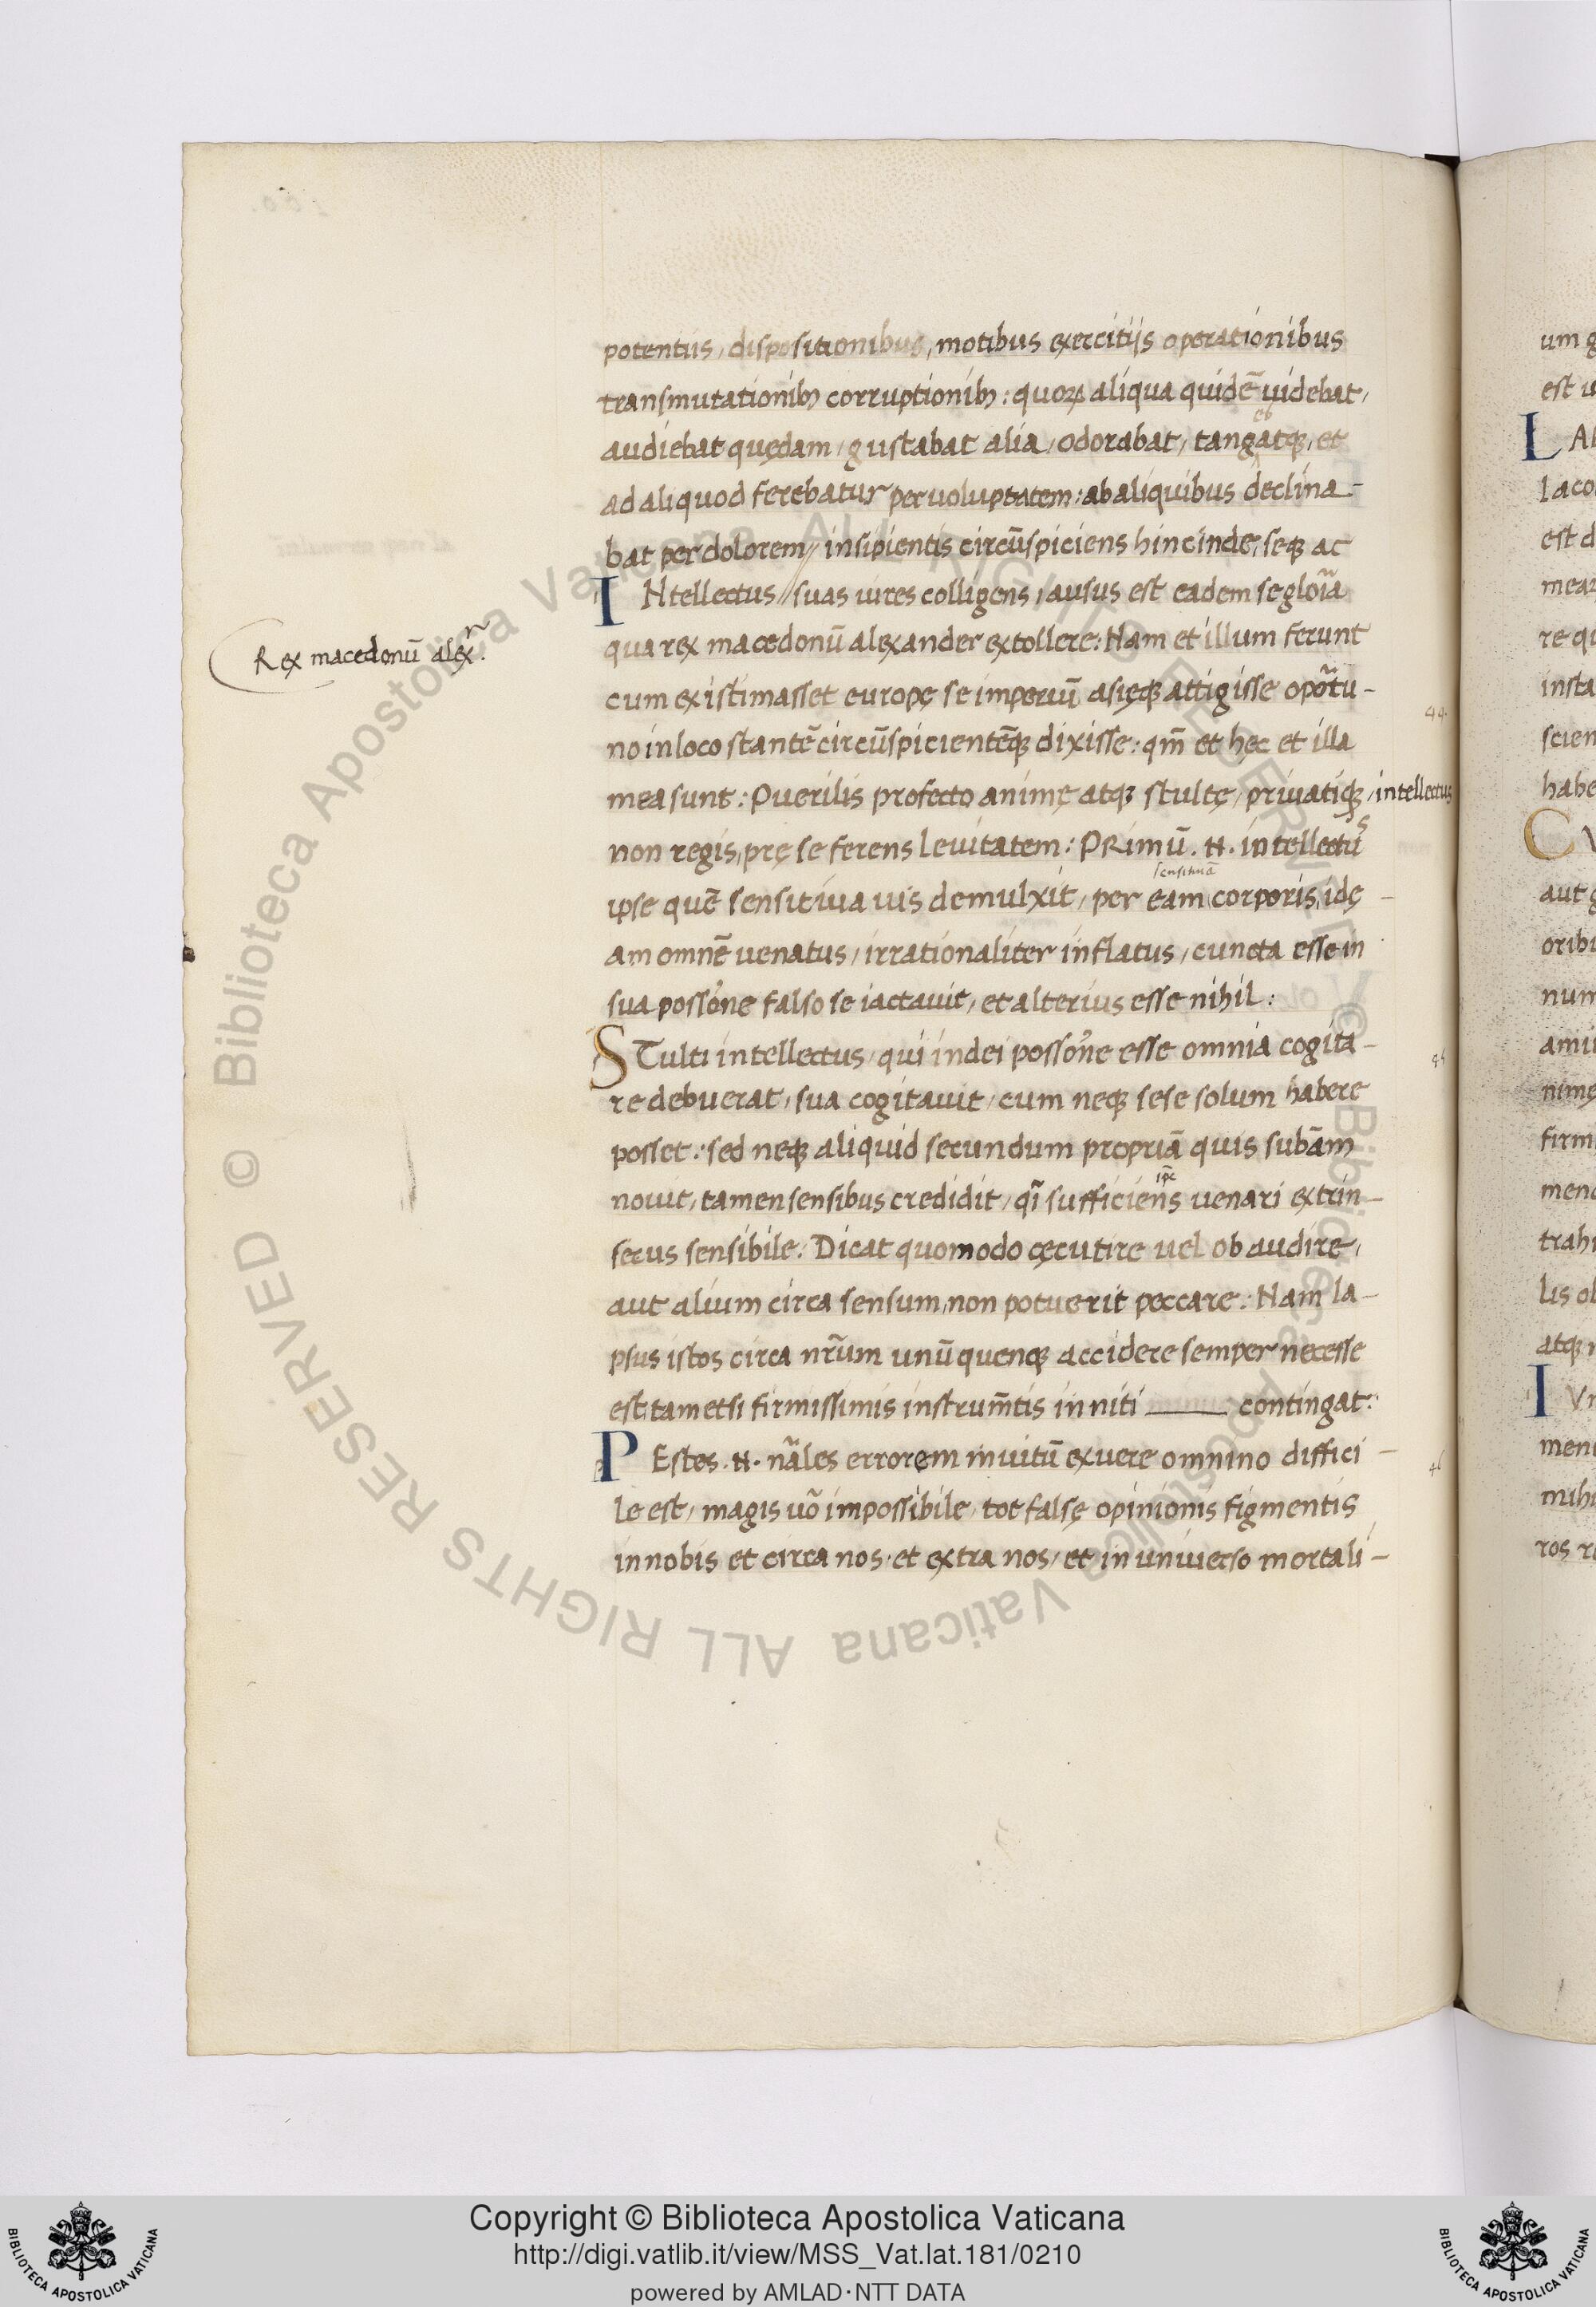 potentiis, dispositionibus, motibus exercitijs operationibus
transmutationibꝫ corruptionibꝫ: quoꝝ aliqua quidē uidebat,
audiebat quędam, gustabat alia, odorabat, tangatqꝫ, et
eb
ad aliquod ferebatur per uoluptatem: ab aliquibus declina-
bat per dolorem // insipientis circūspiciens hinc inde, seqꝫ ac
INtellectus // suas uires colligens, ausus est eadem se gloı̃a
Rex macedonū alex̃.
qua rex macedonū alexander extollere: Nam et illum ferunt
cum existimasset europę se imperiū asięqꝫ attigisse opõtu-
44
no in loco stantē circūspicientēqꝫ dixisse: qm̄ et hęc et illa
mea sunt: Puerilis profecto animę atqꝫ stultę, priuatiqꝫ, intellectus
non regis, prę se ferens leuitatem: PRimū .N. intellectus
sensitiuā
ipse quē sensitiua uis demulxit, per eam corporis, idę-
am omnē uenatus, irrationaliter inflatus, cuncta esse in
sua possõne falso se iactauit, et alterius esse nihil:
STulti intellectus, qui in dei possõne esse omnia cogita-
45
re debuerat, sua cogitauit, cum neqꝫ sese solum habere
posset: sed neqꝫ aliquid secundum propriā quis subām
ip̄e
nouit, tamen sensibus credidit, qı̃ sufficiens uenari extrin-
secus sensibile: Dicat quomodo cęcutire uel ob audire,
aut alium circa sensum, non potuerit peccare: Nam la-
psus istos circa nr̄um unū quenqꝫ accidere semper necesse
est, tametsi firmissimis instrum̄tis inniti contingat:
PEstes .N. nãles errorem inuitū exuere omnino diffici-
46
le est, magis uõ impossibile, tot falsę opinionis figmentis
in nobis et circa nos, et extra nos, et in uniuerso mortali-
um g
est u
L A
laco
est d
mea
re qu
insta
scien
habe
C V
aut g
orib
num
ami
nimę
firm
mena
trah
lis ob
atqꝫ
I Vn
men
mih
ros r
© Biblioteca Apostolica Vaticana ALL RIGHTS RESERVED
© Biblioteca Apostolica Vaticana ALL RIGHTS RESERVED
Copyright © Biblioteca Apostolica Vaticana
http://digi.vatlib.it/view/MSS_Vat.lat.181/0210
powered by AMLAD·NTT DATA
BIBLIOTECA APOSTOLICA VATICANA
BIBLIOTECA APOSTOLICA VATICANA